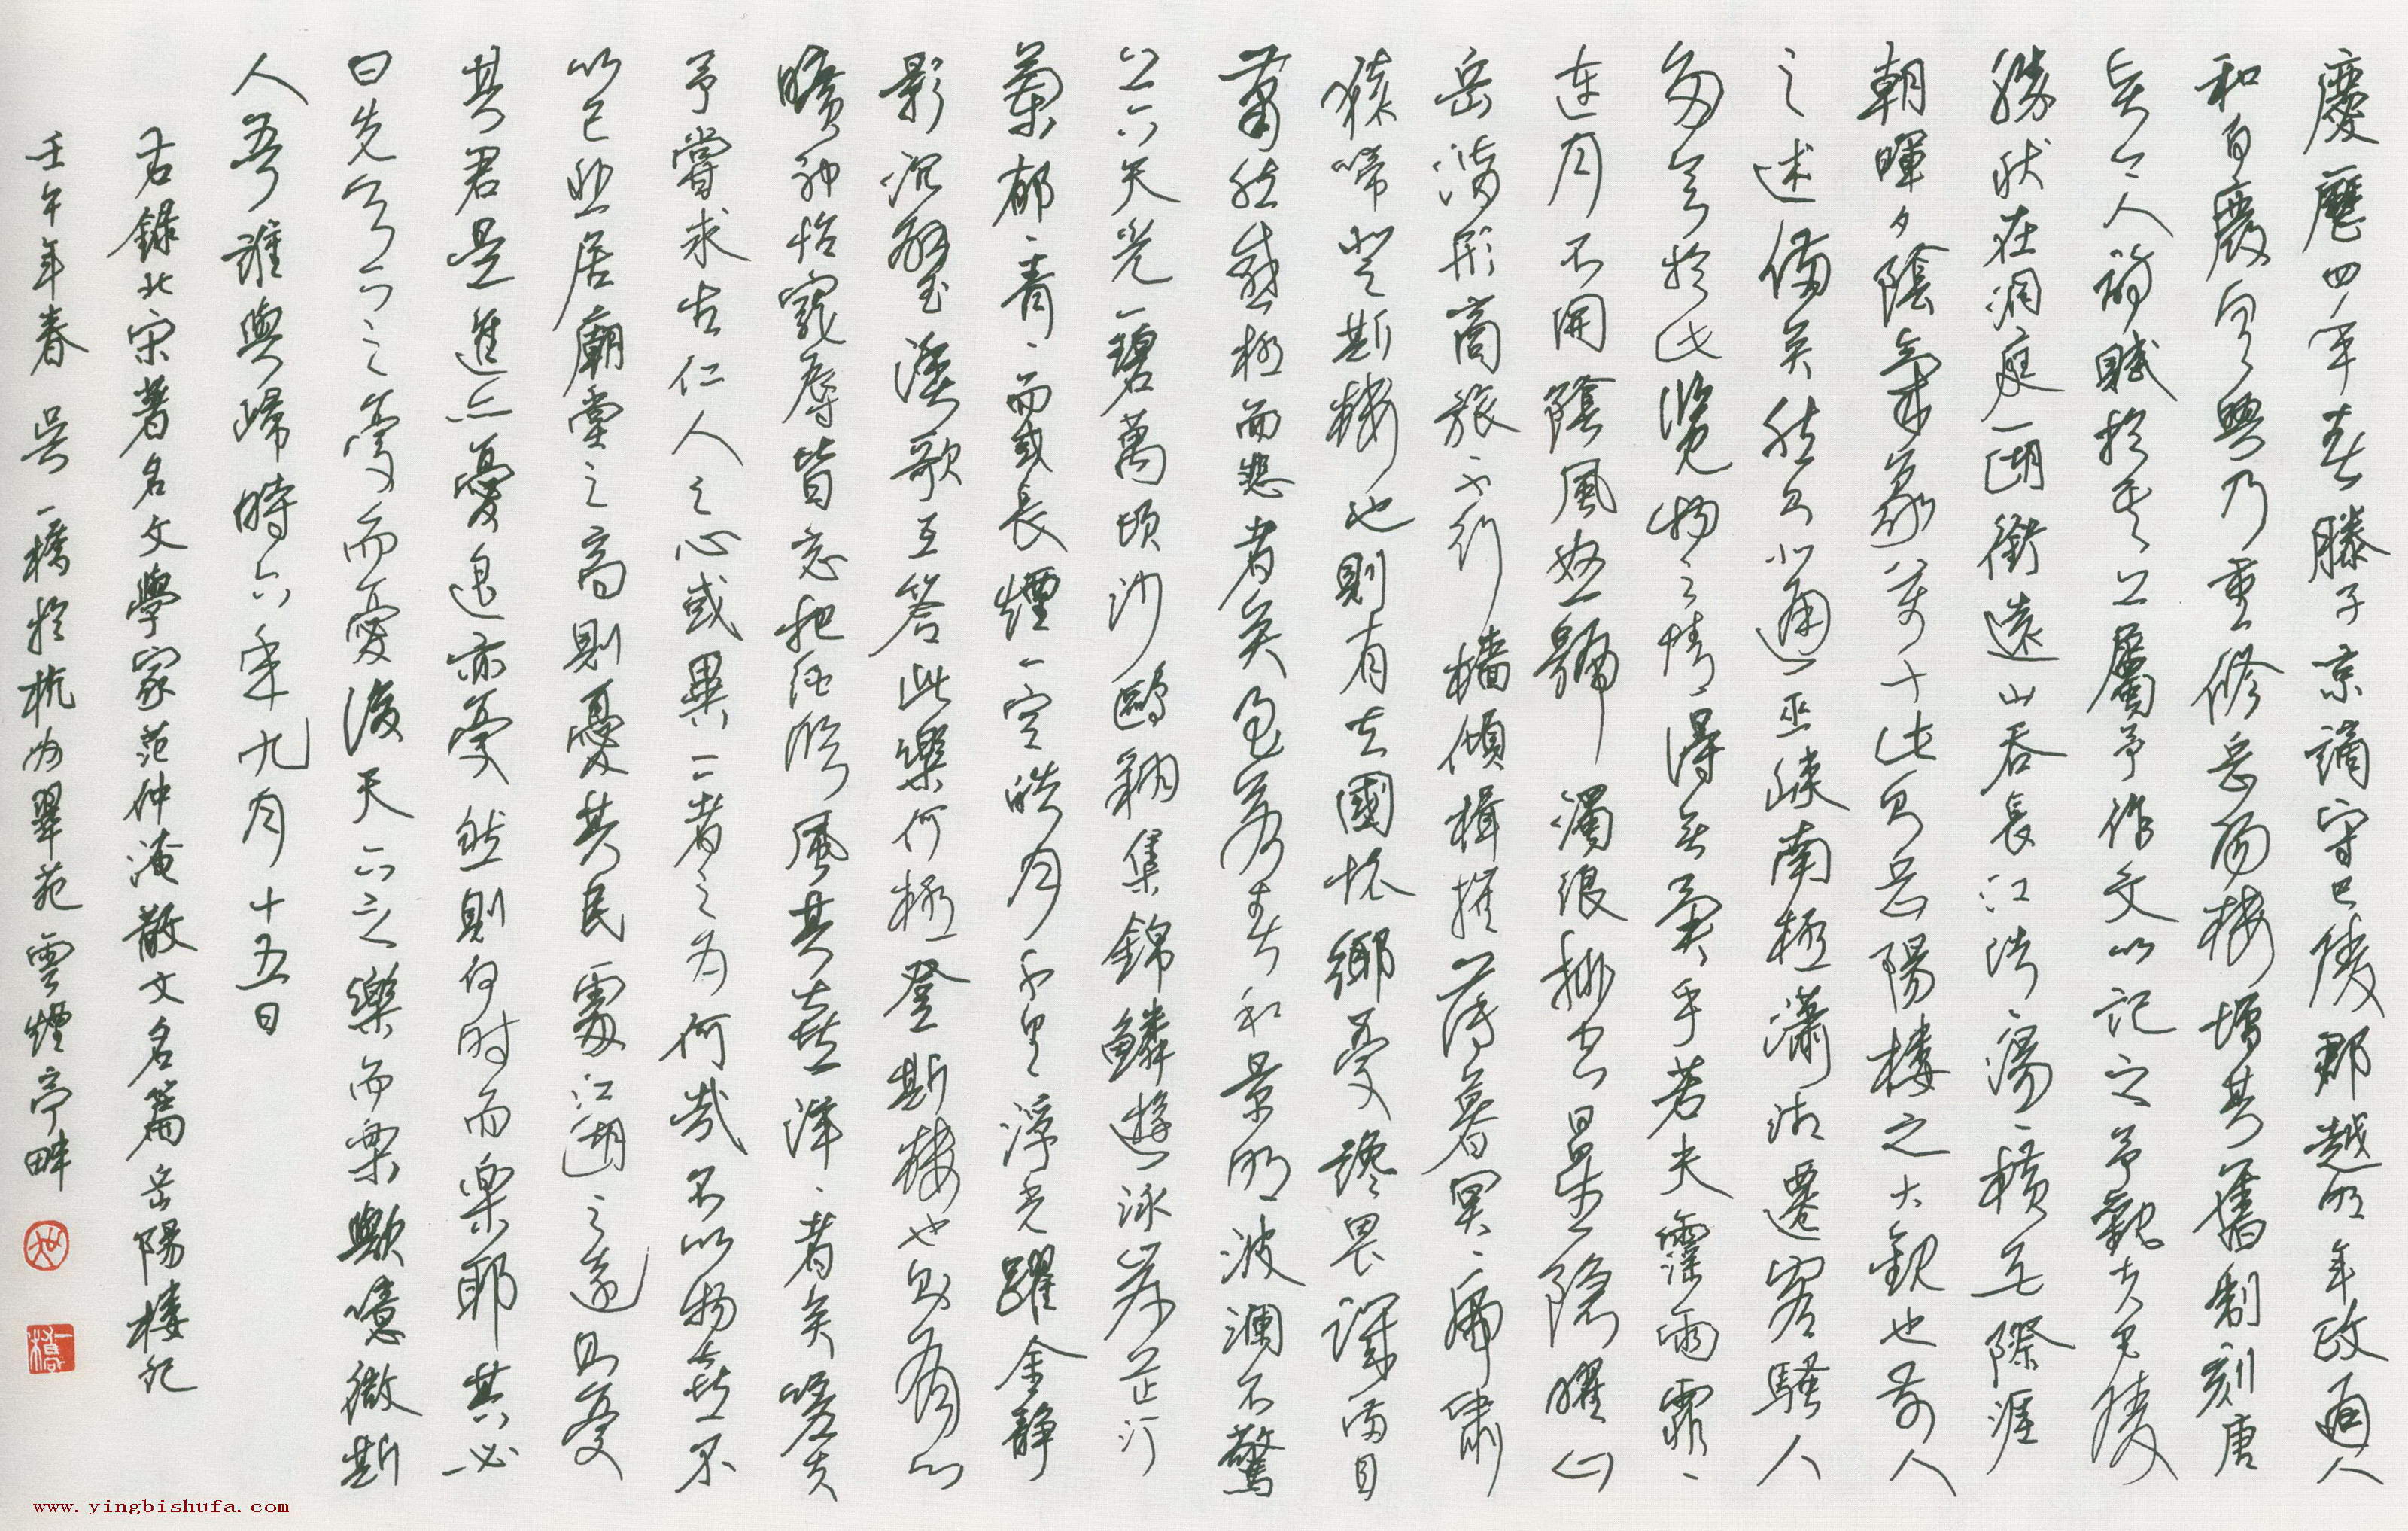 慶曆四年春滕子京謫守巴陵郡越明年政通人
和百廢具興乃重修岳陽樓增其舊制刻唐
賢今人詩賦於其上屬予作文以記之予觀夫巴陵
勝狀在洞庭一湖銜遠山吞長江浩、湯、橫無際涯
朝暉夕陰氣象萬千此則岳陽樓之大觀也前人
之述備矣然則北通巫峽南極瀟湘遷客騷人
多會於此覽物之情得無異乎若夫霪雨霏、
連月不開陰風怒號濁浪排空日星隱曜山
岳潛形商旅不行檣傾楫摧薄暮冥、虎嘯
猿啼登斯樓也則有去國懷鄉憂讒畏譏滿目
蕭然感極而悲者矣至若春和景明波瀾不驚
上下天光一碧萬頃沙鷗翔集錦鱗遊泳岸芷汀
蘭郁、青、而或長煙一空皓月千里浮光躍金靜
影沉璧漁歌互答此樂何極登斯樓也則有心
曠神怡寵辱皆忘把酒臨風其喜洋、者矣嗟夫
予嘗求古仁人之心或異二者之為何哉不以物喜不
以己悲居廟堂之高則憂其民處江湖之遠則憂
其君是進亦憂退亦憂然則何时而樂耶其必
曰先天下之憂而憂後天下之樂而樂歟噫微斯
人吾誰與歸時六年九月十五日
右錄北宋著名文學家范仲淹散文名篇岳陽樓記
壬午年春 吳一橋於杭州翠苑雲煙亭畔
一橋
www.yingbishufa.com